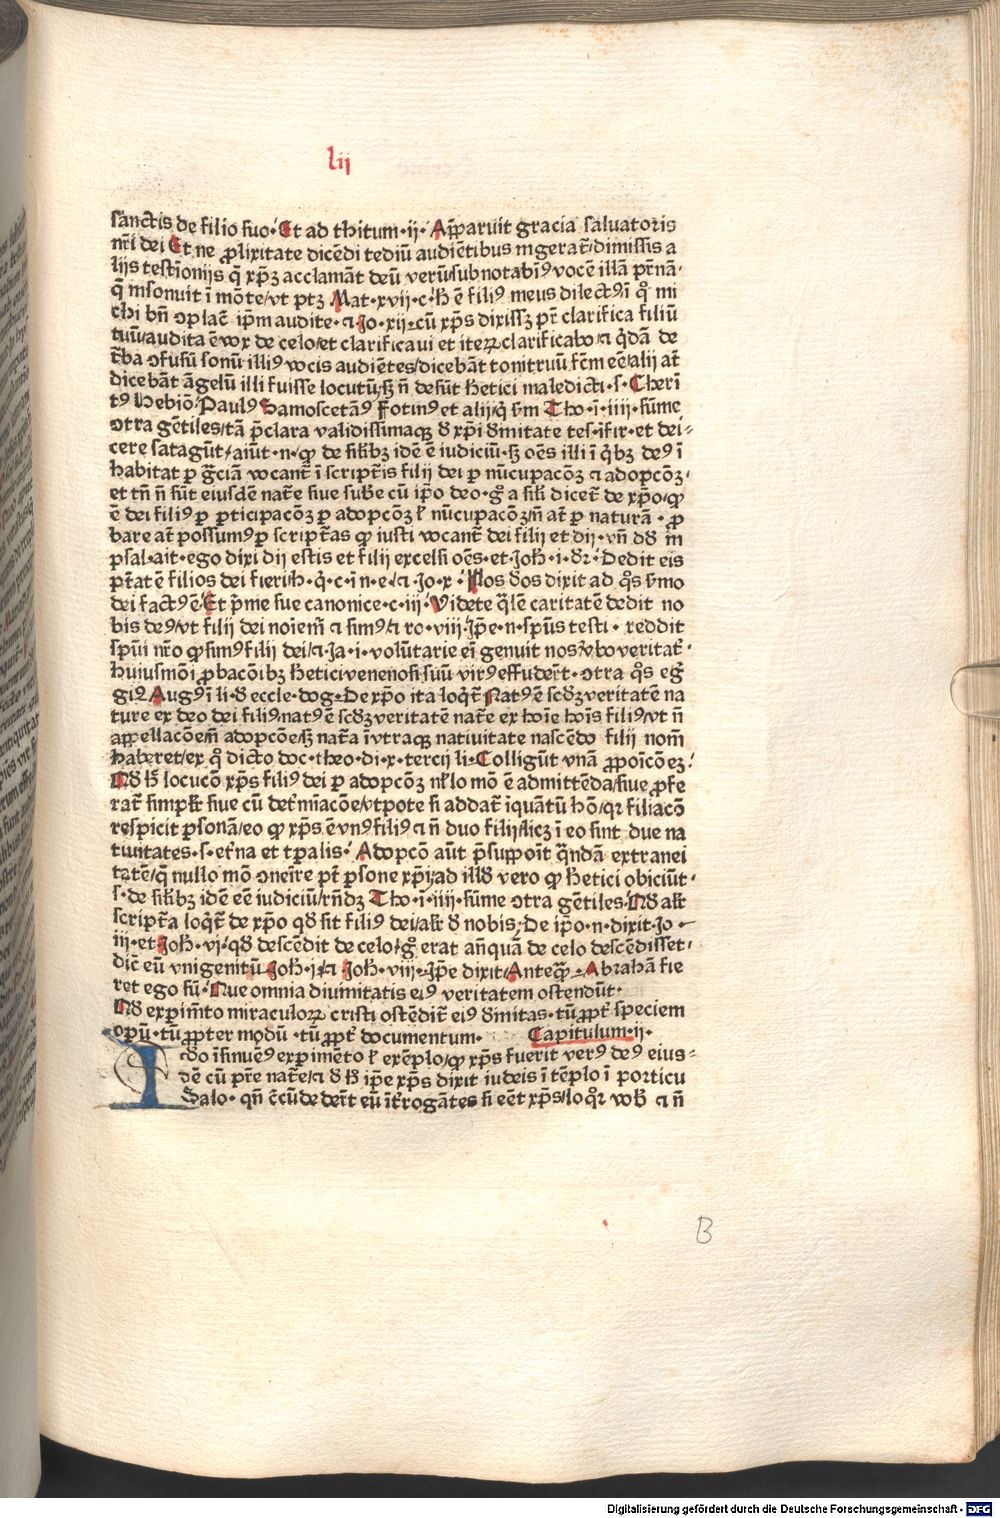 lii
sanctis de filio suo· Et ad thitum·ii· Aꝑparuit gracia saluatoris
nr̄i dei Et ne ꝓlixitate dicēdi tediū audiētibus ingerat᷑/dimissis a
lijs testīonijs q̄ xp̄ꝫ acclamāt deū verū/subnotabim⁹ vocē illā pr̄nā·
q̄ insonuit ī mōte/vt ptꝫ Mat·xvij·c·h̄ ē fili⁹ meus dilect⁹ ī qͦ mi
chi bn̄ ꝯplac̄ ip̄m audite·⁊ Jo·xij·cū xp̄s dixissꝫ pr̄ clarifica filiū
tuū/audita ē vox de celo/et clarificaui et iteꝝ clarificabo/⁊ q̄dā de
t̄ba ꝯfusū sonū illi⁹ vocis audiētes/dicebāt tonitruū fc̄m eē/alij at̄
dicebāt āgelū illi fuisse locutū/sꝫ n̄ desūt hetici maledicti·s·Cheri
t⁹ hebiō/Paul⁹ Samoscetā⁹ fotin⁹ et alij/q̄ s̄m Tho·i·iiij·sūme
ꝯtra gētiles/tā p̄clara validissimaqꝫ ꝺ xp̄i ꝺinitate tes·īfir·et dei-
cere satagūt/aiūt·n·ꝙ de sil̄ibꝫ idē ē iudiciū·sꝫ oēs illi ī q̄bꝫ de⁹ ī
habitat ꝑ gr̄ciā vocant᷑ ī script᷑is filij dei ꝑ nūcupacōꝫ ⁊ adopcōꝫ·
et tn̄ n̄ sūt eiusdē nat᷑e siue sub̄e cū ip̄o deo·gͦ a sil̄i dicet᷑ de xp̄o/ꝙ
ē dei fili⁹ ꝑ ꝑticipacōꝫ ꝑ adopcōꝫ l̄ nūcupacōꝫ/n̄ at̄ ꝑ naturā·ꝓ
bare at̄ possum⁹ ꝑ script᷑as ꝙ iusti vocant᷑ dei filij et dij·vn̄ dd̄ in
psal·ait·ego dixi dij estis et filij excelsi oēs·et Joh̄·i·dr̄·Dedit eis
pt̄atē filios dei fieri/h̄·q̄·c·i n·e·/⁊ Jo·x· Illos ꝺos dixit ad q̄s s̄mo
dei fact⁹ ē· Et p̄me sue canonice·c·iij· Videte q̄lē caritatē dedit no
bis de⁹/vt filij dei noīem᷑ ⁊ sim⁹/⁊ ro·viij·Ip̄e·n·sp̄us testi· reddit
sp̄ui nr̄o ꝙ sim⁹ filij dei/⁊ Ja·i·volūtarie ei genuit nos v̄bo veritat᷑·
huiusmōi ꝓbacōibꝫ hetici venenosi suū vir⁹ effudert̄·ꝯtra q̄s eg̃
gi⁹ Aug⁹ ī li·ꝺ eccle·dog·De xp̄o ita loqt᷑ Nat⁹ ē scd̄ꝫ veritatē na
ture ex deo dei fili⁹/nat⁹ ē scd̄ꝫ veritatē nat᷑e ex hoīe hoīs fili⁹/vt n̄
appellacōe/n̄ adopcōe/sꝫ nat᷑a ī vtraqꝫ natiuitate nascēdo filij nom̄
haberet/ex qͦ dicto doc·theo·di·x·tercij li·Colligūt vnā ꝓpoīcōeꝫ·
Ad h̄ locucō xp̄s fili⁹ dei ꝑ adopcōꝫ nl̄lo mō ē admittēda/siue ꝓfe
rat᷑ simpl̄r siue cū det᷑mīacōe/vtpote si addat᷑ īquātū hō/qr filiacō
respicit ꝑsonā/eo ꝙ xp̄s ē vn⁹ fili⁹ ⁊ n̄ duo filij/licꝫ ī eo sint due na
tiuitates·s·et᷑na et tꝑalis· Adopcō aūt p̄suppoīt q̄ndā extranei
tatē/q̄ nullo mō ꝯueīre pt̄ ꝑsone xp̄i/ad illd̄ vero ꝙ hetici obiciūt·
s·de sil̄ibꝫ idē eē iudiciū/rn̄dꝫ Tho·i·iiij·sūme ꝯtra gētiles·Ad al̄r
script᷑a loqt᷑ de xp̄o qd̄ sit fili⁹ dei/al̄r ꝺ nobis·De ip̄o·n·dixit Jo·
iij·et Joh̄·vi·qd̄ descēdit de celo/gͦ erat an̄quā de celo descēdisset·
dic̄ eū vnigenitū Joh̄·i·⁊ Joh̄·viij·Ip̄e dixit/Anteq̄·Abrahā fie
ret ego sū·Que omnia diuinitatis ei⁹ veritatem ostendūt·
Ad experim̄to miraculoꝝ cristi ostēdit᷑ ei⁹ ꝺinitas·tū ꝓpt᷑ speciem
opū·tū ꝓpter modū·tū ꝓpt᷑ documentum· Capitulum·ii·
I do īsinuē⁹ experimēto l̄ exēplo/ꝙ xp̄s fuerit ver⁹ de⁹ eius-
dē cū pr̄e nat᷑e/⁊ ꝺ h̄ ip̄e xp̄s dixit iudeis ī tēplo ī porticu
Salo·qn̄ c̄cūdedert̄ eū īt᷑rogātes si eēt xp̄s/loqͦr vob̄ ⁊ n̄
B
Digitalisierung gefördert durch die Deutsche Forschungsgemeinschaft - DFG